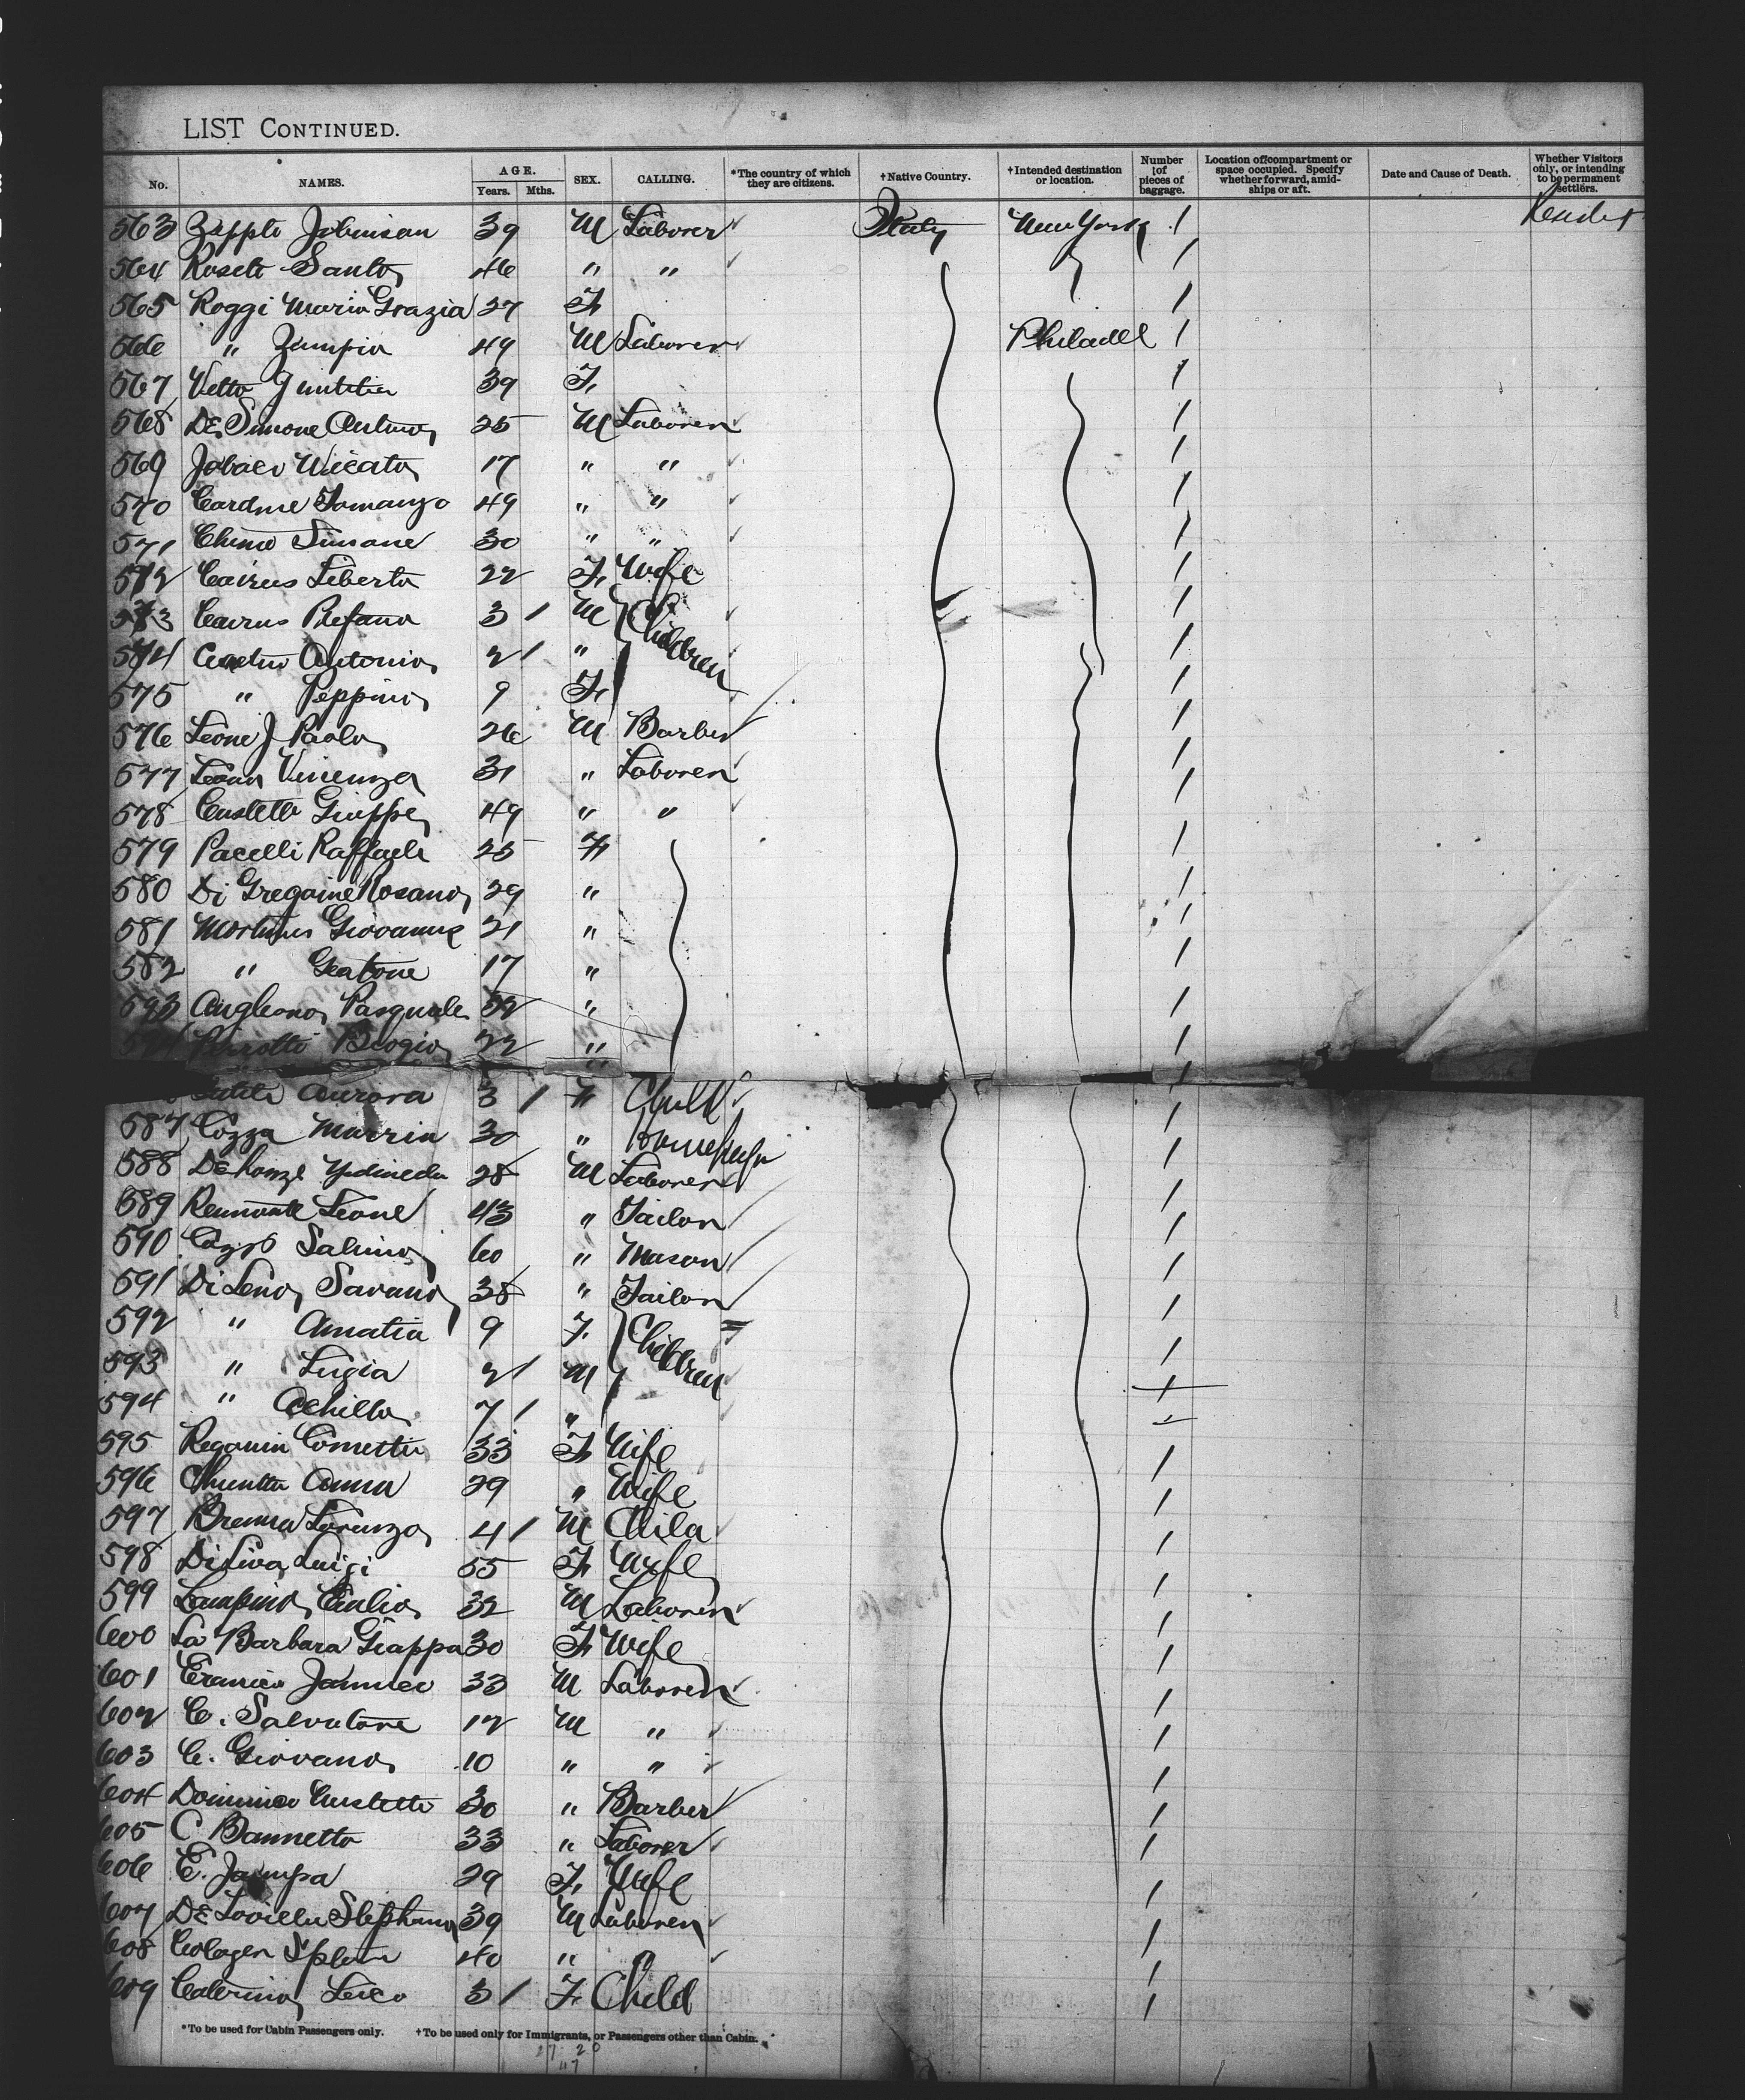 LIST CONTINUED.
No. NAMES. AGE. Years. Mths. SEX. CALLING. *The country of which they are citizens. †Native Country. †Intended destination or location. Number of pieces of baggage. Location of compartment or space occupied. Specify whether forward, amidships or aft. Date and Cause of Death. Whether Visitors only, or intending to be permanent settlers.
563 Zipplo Johnison 39 M Laborer Italy New York 1
564 Roseti Santo 46 " " 1
565 Roggi Maria Grazia 27 F 1
566 " Zumpia 49 M Laborer Philadel 1
567 Vetto 39 F. 1
568 De Simone Antino 25 M Laborer 1
569 17 " " 1
570 Cardine Tomanzo 49 " " 1
571 Chimo Simone 30 " " 1
572 Cairus Liberta 22 F. Wife 1
573 Cairus 3 / M Children 1
574 Antonio 2 / " 1
575 " Peppino 9 F. 1
576 Leone J Paolo 26 M Barber 1
577 Leona Vincenza 31 " Laborer 1
578 Custetti Giuppe 49 " " 1
579 Pacelli Raffaele 25 F 1
580 Di Gregoine Rosano 29 " 1
581 Giovanne 21 " 1
582 " Geatone 17 " 1
593 Angleono Pasquale 52 " 1
Perrotti Biogio 22 " 1
Aurora 3 / F Child 1
587 Cozza Marria 30 " 1
588 28 M Laborer 1
589 Leone 43 " Tailor 1
590 Cozzo Salvino 60 " Mason 1
591 Di Leno Savano 38 " Tailor 1
592 " Amatia 9 F. Children 1
593 " Luzia 2 / M 1
594 " Achillo 7 / " 1
595 33 F Wife 1
596 Anna 29 " Wife 1
597 Brenna Lorenzo 4 / M Child 1
598 Di Liva Luigi 55 F Wife 1
599 Lampino 32 M Laborer 1
600 La Barbara Giappa 30 F Wife 1
601 33 M Laborer 1
602 C. Salvatore 12 M " 1
603 C. Giovano 10 " " 1
604 Dominico Custetti 30 " Barber 1
605 C Bannetto 33 " Laborer 1
606 C. 29 F. Wife 1
607 De Stephano 39 M Laborer 1
608 40 " " 1
609 Caterino Leico 3 / F. Child 1
*To be used for Cabin Passengers only. †To be used only for Immigrants, or Passengers other than Cabin.
27 20